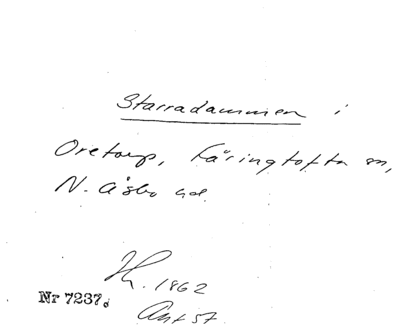 Starradammen i
Oretorp, Färingtofta sn,
N. Åsbo hd.
1862
Nr 7237
Ant 57.